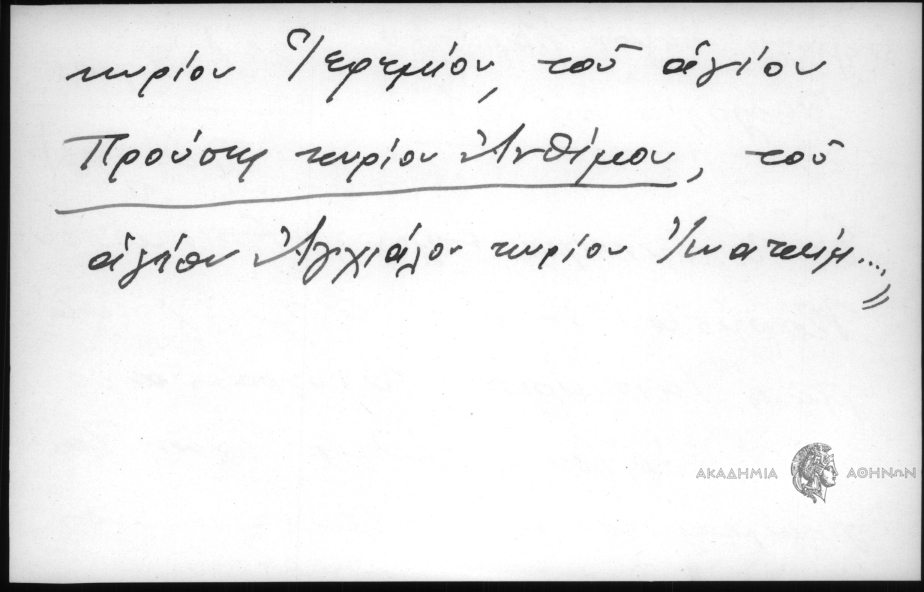 κυρίου Ἱερεμίου, τοῦ ἁγίου
Προύσης κυρίου Ἀνθίμου, τοῦ
ἁγίου Ἀγχιάλου κυρίου Ἰωακείμ....
ΑΚΑΔΗΜΙΑ ΑΘΗΝΩΝ